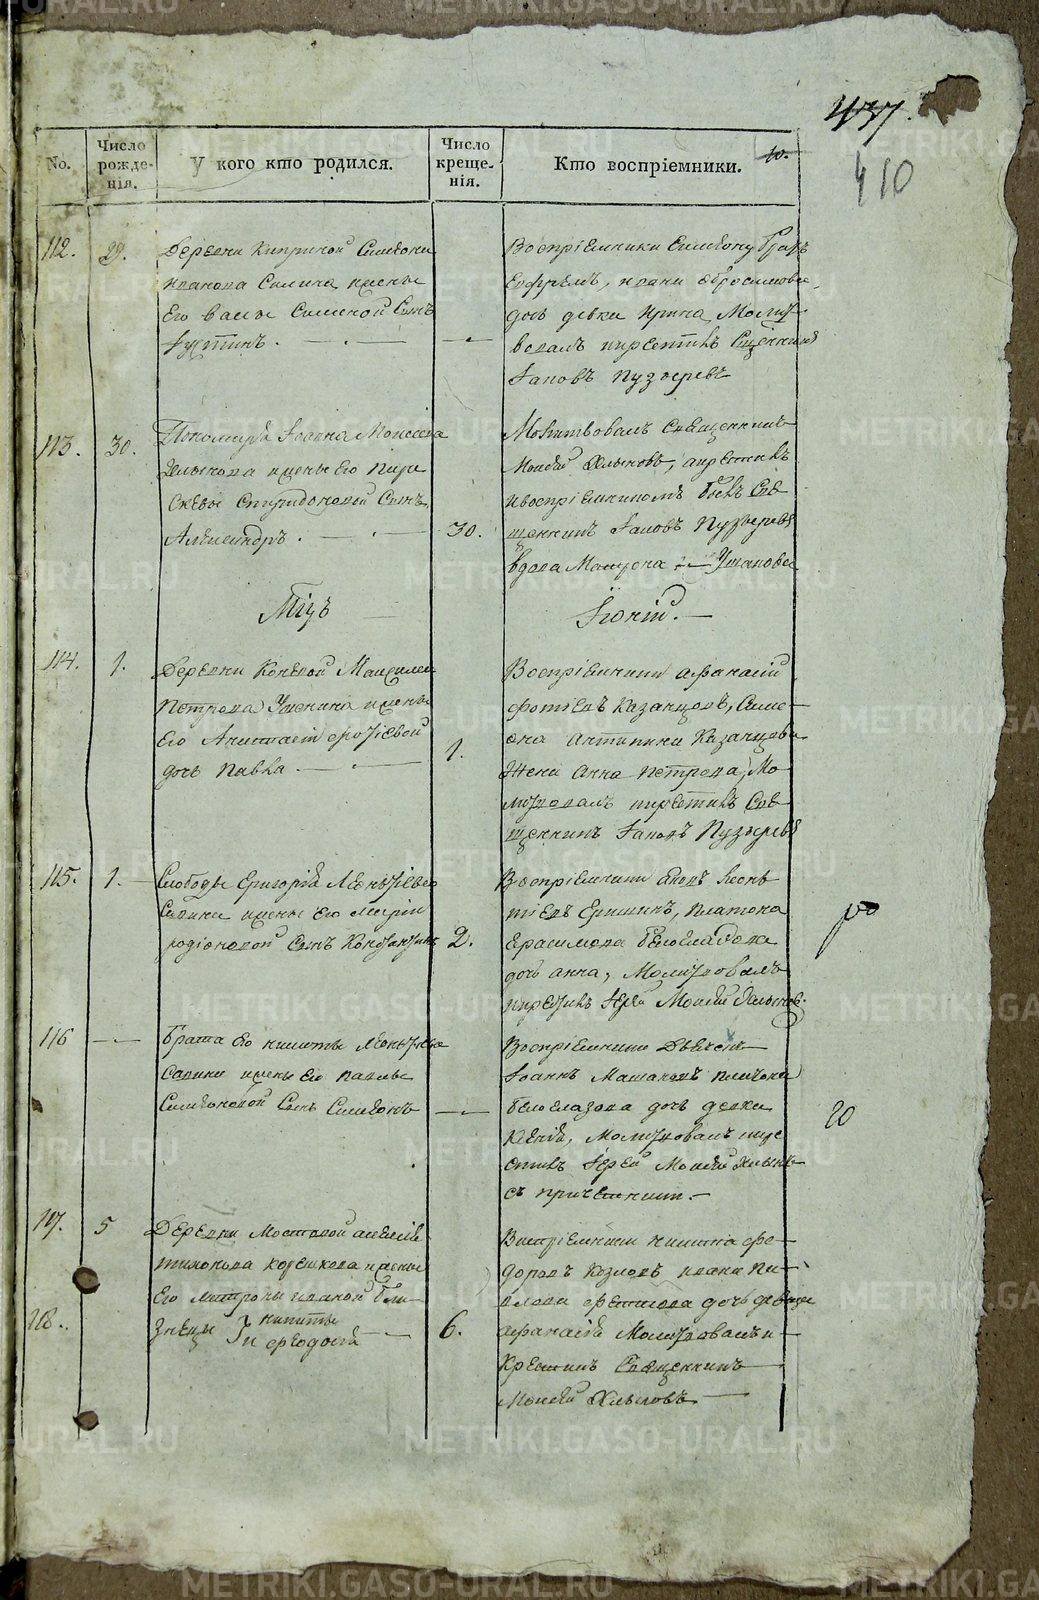 437.
410
No.
Число рожде-нія.
У кого кто родился.
Число креще-нія.
Кто воспріемники.
10.
112.
29.
Деревни Киприной Симеона
Иванова Силина жены
Его Васы Сим Сынъ
Іустинъ.
Воспріемники Симеону братъ
Ефремъ, ивана
дочь девка Ирина Молит
вовалъ икрестилъ Сщенникъ
Іаковъ Пузыревъ
113.
30.
Пономаря Іоанна Моисеева
Хлынова жены Его Пара
скевы Спиридоновой Сынъ
Александръ.
30.
Молитвовалъ Священникъ
Моисей Хлыновъ, а крестилъ
и воспріемникомъ былъ Свя
щенникъ Іаковъ Пузыревъ
вдова Матрона Ушакова
Мцъ
Іюній.
114.
1.
Деревни Коневой
Петрова жены
Его Анастасіи Фотіевой
дочь Павла
1.
Воспріемники Афанасій
Фотіевъ Казанцовъ, Симе
она Антипина Казанцова
Жена Анна Петрова, Мо
литвовалъ икрестилъ Свя
щенникъ Іаковъ Пузыревъ
115.
1.
Слободы Григорія Леонтіева
Савина жены Его Маріи
родіоновой Сынъ Константинъ
2.
Воспріемники Леон
тіевъ Ершинъ, Платона
Герасимова Белоглазова
дочь анна, Молитвовалъ
икрестилъ Іерей Моисей Хлыновъ.
116
Брата Его никиты Леонтіева
Савина жены Его Павлы
Симеоновой Сынъ Симеонъ
Воспріемники
Іоаннъ Платона
белоглазова дочь девка
Ксенія, Молитвовалъ икре
стилъ Іерей Моисей Хлыновъ
съ причетники.
20
117.
5
Деревни Мостовой алексея
тихонова Корешкова жены
Его Матроны ивановой бли
118.
знецы никита
и Феодосій
6.
Воспріемники никита Фе
доровъ Козловъ ивана
дочь девица
афанасія Молитвовалъ и
Крестилъ Священникъ
Моисей Хлыновъ
METRIKI.GASO-URAL.RU